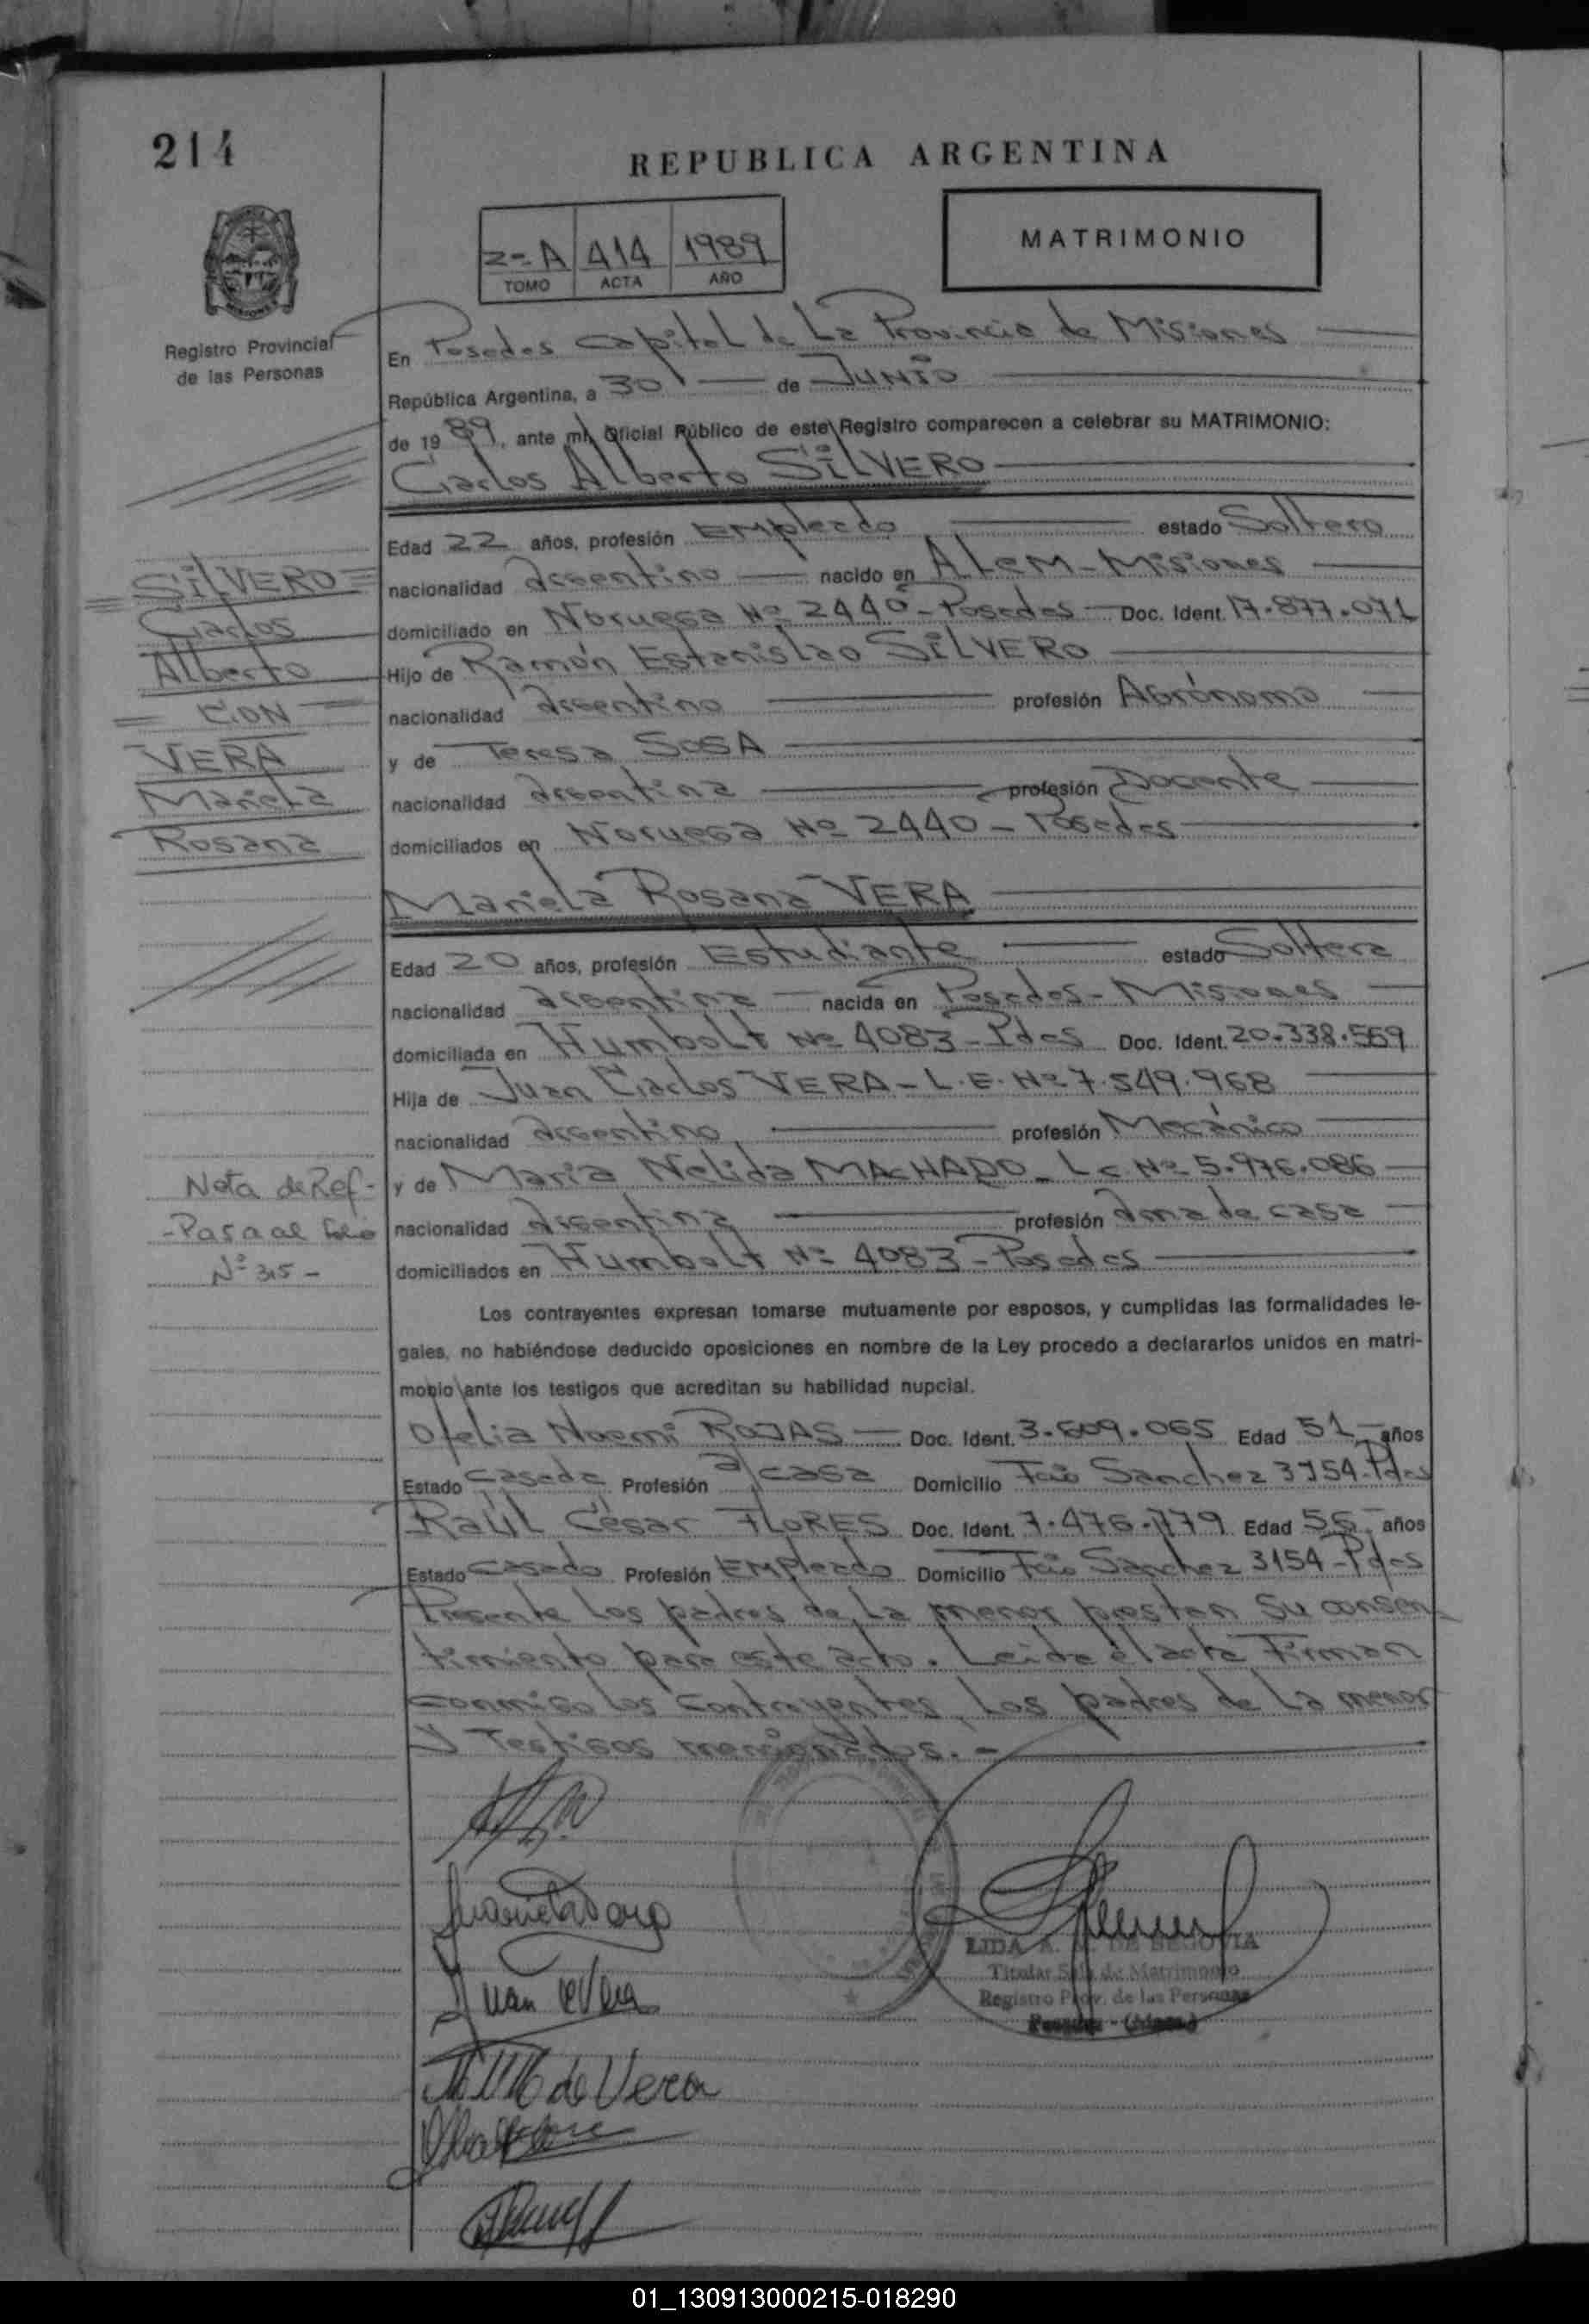 214
REPUBLICA ARGENTINA
2=A 414 1989
TOMO ACTA AÑO
MATRIMONIO
Registro Provincial
de las Personas
En Posadas Capital de La Provincia de Misiones
República Argentina, a 30 de JUNIO
de 1989, ante mí, Oficial Público de este Registro comparecen a celebrar su MATRIMONIO:
Carlos Alberto SILVERO
Edad 22 años, profesión Empleado estado Soltero
nacionalidad argentino nacido en ALEM - Misiones
domiciliado en Noruega Nº 2440 - Posadas Doc. Ident. 17.877.071
Hijo de Ramón Estanislao SILVERO
nacionalidad argentino profesión Agrónomo
y de Teresa SOSA
nacionalidad argentina profesión Docente
domiciliados en Noruega Nº 2440 - Posadas
SILVERO
Carlos
Alberto
= CON =
VERA
Mariela
Rosana
Mariela Rosana VERA
Edad 20 años, profesión Estudiante estado Soltera
nacionalidad argentina nacida en Posadas - Misiones
domiciliada en Humbolt Nº 4083 - Pdas Doc. Ident. 20.338.569
Hija de Juan Carlos VERA - L.E. Nº 7.549.968
nacionalidad argentino, profesión Mecánico
y de Maria Nelida MACHADO - Lc Nº 5.976.086
nacionalidad argentina profesión ama de casa
domiciliados en Humbolt Nº 4083 - Posadas
Nota de Ref-
- Pasa al folio
Nº 315 -
Los contrayentes expresan tomarse mutuamente por esposos, y cumplidas las formalidades le-
gales, no habiéndose deducido oposiciones en nombre de la Ley procedo a declararlos unidos en matri-
monio ante los testigos que acreditan su habilidad nupcial.
Ofelia Noemi ROJAS Doc. Ident. 3.609.065 Edad 51 años
Estado Casada Profesión a/casa Domicilio Fcio Sanchez 3154-Pdas
Raúl César FLORES Doc. Ident. 7.476.779 Edad 56 años
Estado Casado Profesión Empleado Domicilio Fcio Sanchez 3154-Pdas
Presente los padres de La menor prestan su consen
timiento para este acto. Leida el acta Firman
conmigo los contrayentes, los padres de La menor
y Testigos mencionados. -
Juan C Vera
de Vera
LIDA A. DE SEGOVIA
Titular Sala de Matrimonio
Registro Prov. de las Personas
Posadas - (Mnes.)
01_130913000215-018290